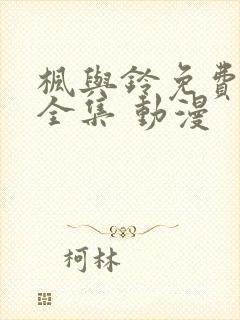 楓與鈴免費
全集 動漫
柯林